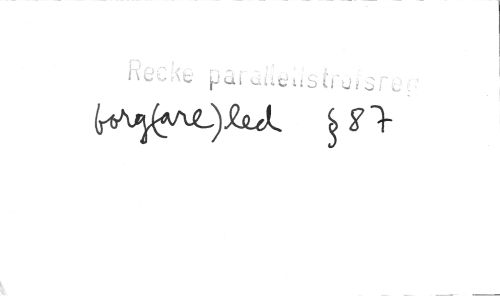 Recke parallellstrofsreg
borg(are)led § 87